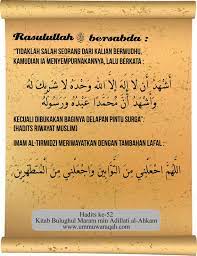 Rasulullah ﷺ bersabda :
"TIDAKLAH SALAH SEORANG DARI KALIAN BERWUDHU,
KAMUDIAN IA MENYEMPURNAKANNYA, LALU BERKATA :
أَشْهَدُ أَنْ لَا إِلَهَ إِلَّا اللَّهُ وَحْدَهُ لَا شَرِيكَ لَهُ
وَأَشْهَدُ أَنَّ مُحَمَّدًا عَبْدُهُ وَرَسُولُهُ
KECUALI DIBUKAKAN BAGINYA DELAPAN PINTU SURGA".
(HADITS RIWAYAT MUSLIM)
IMAM AL-TIRMIDZI MERIWAYATKAN DENGAN TAMBAHAN LAFAL :
اللَّهُمَّ اجْعَلْنِي مِنَ التَّوَّابِينَ وَاجْعَلْنِي مِنَ الْمُتَطَهِّرِينَ
Hadits ke-52
Kitab Bulughul Maram min Adillati al-Ahkam
www.ummuwaraqah.com